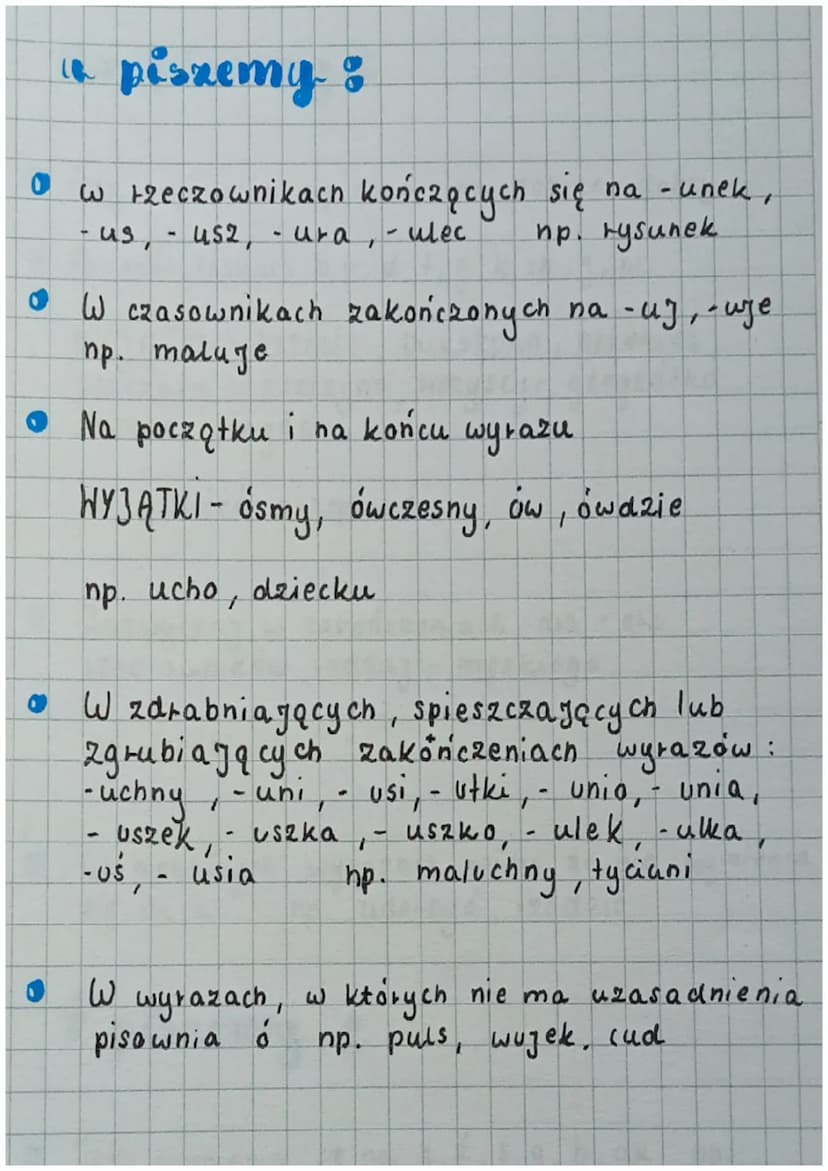 u piszemy:
w rzeczownikach kończących się na -unek,
-us, -usz, -ura, -ulec np. rysunek
W czasownikach zakończonych na -uj, -uje
np. maluje
Na początku i na końcu wyrazu
WYJĄTKI - ósmy, ówczesny, ów, ówdzie
np. ucho, dziecku
W zdrabniających, spieszczających lub
zgrubiających zakończeniach wyrazów:
-uchny, -uni, -usi, -utki, -unio, -unia,
-uszek, -uszka, -uszko, -ulek, -ulka,
-uś, -usia np. maluchny, tyciuni
W wyrazach, w których nie ma uzasadnienia
pisownia ó np. puls, wujek, cud